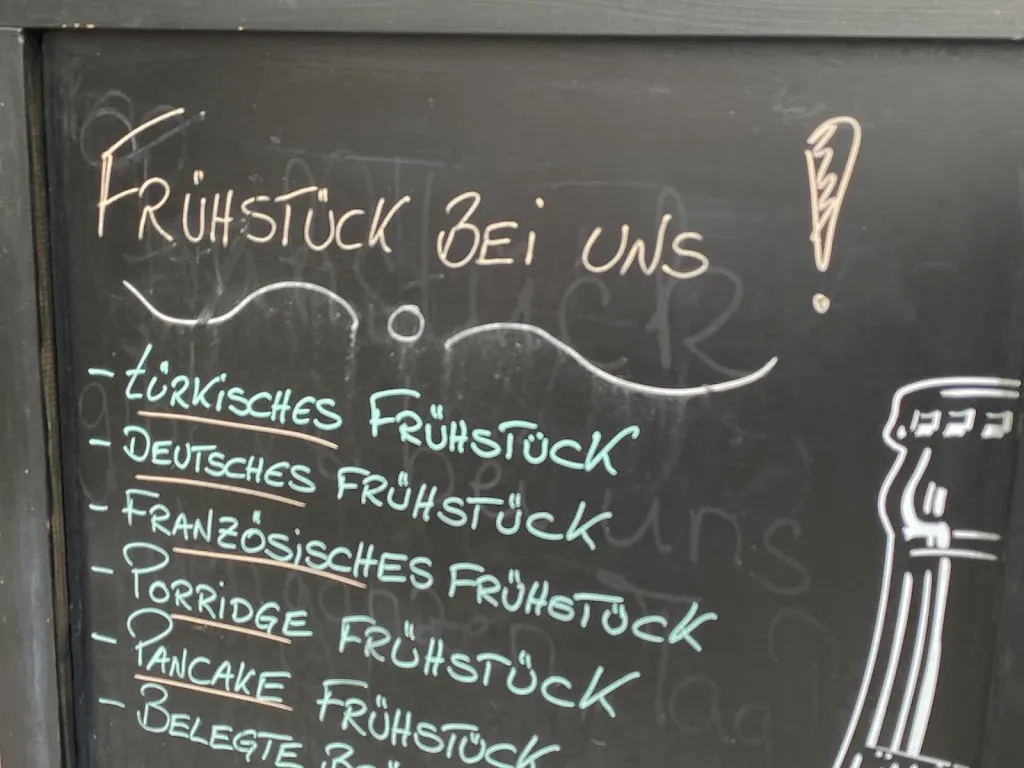 FRÜHSTÜCK BEi UNS !
- tÜRKiSCHES FRÜHSTÜCK
- DEUTSCHES FRÜHSTÜCK
- FRANZÖSiSCHES FRÜHSTÜCK
- PORRiDGE FRÜHSTÜCK
- PANCAKE FRÜHSTÜCK
- BELEGTE